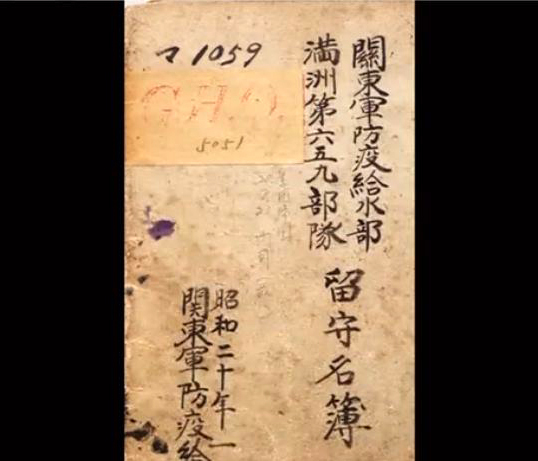 マ1059
G.H.Q.
5051
關東軍防疫給水部
満洲第六五九部隊
留守名簿
昭和二十年一
関東軍防疫給